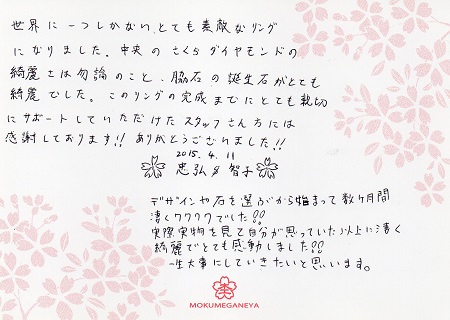 世界に一つしかない、とても素敵なリング
になりました。中央のさくらダイヤモンドの
綺麗さは勿論のこと、脇石の誕生石がとても
綺麗でした。このリングの完成までにとても親切
にサポートしていただけたスタッフさん方には
感謝しております!! ありがとうございました!!
2015. 4. 11
忠弘 智子
デザインや石を選ぶから始まって数ヶ月間
凄くワクワクでした!!
実際実物を見て自分が思っていた以上に凄く
綺麗でとても感動しました!!
一生大事にしていきたいと思います。
MOKUMEGANEYA